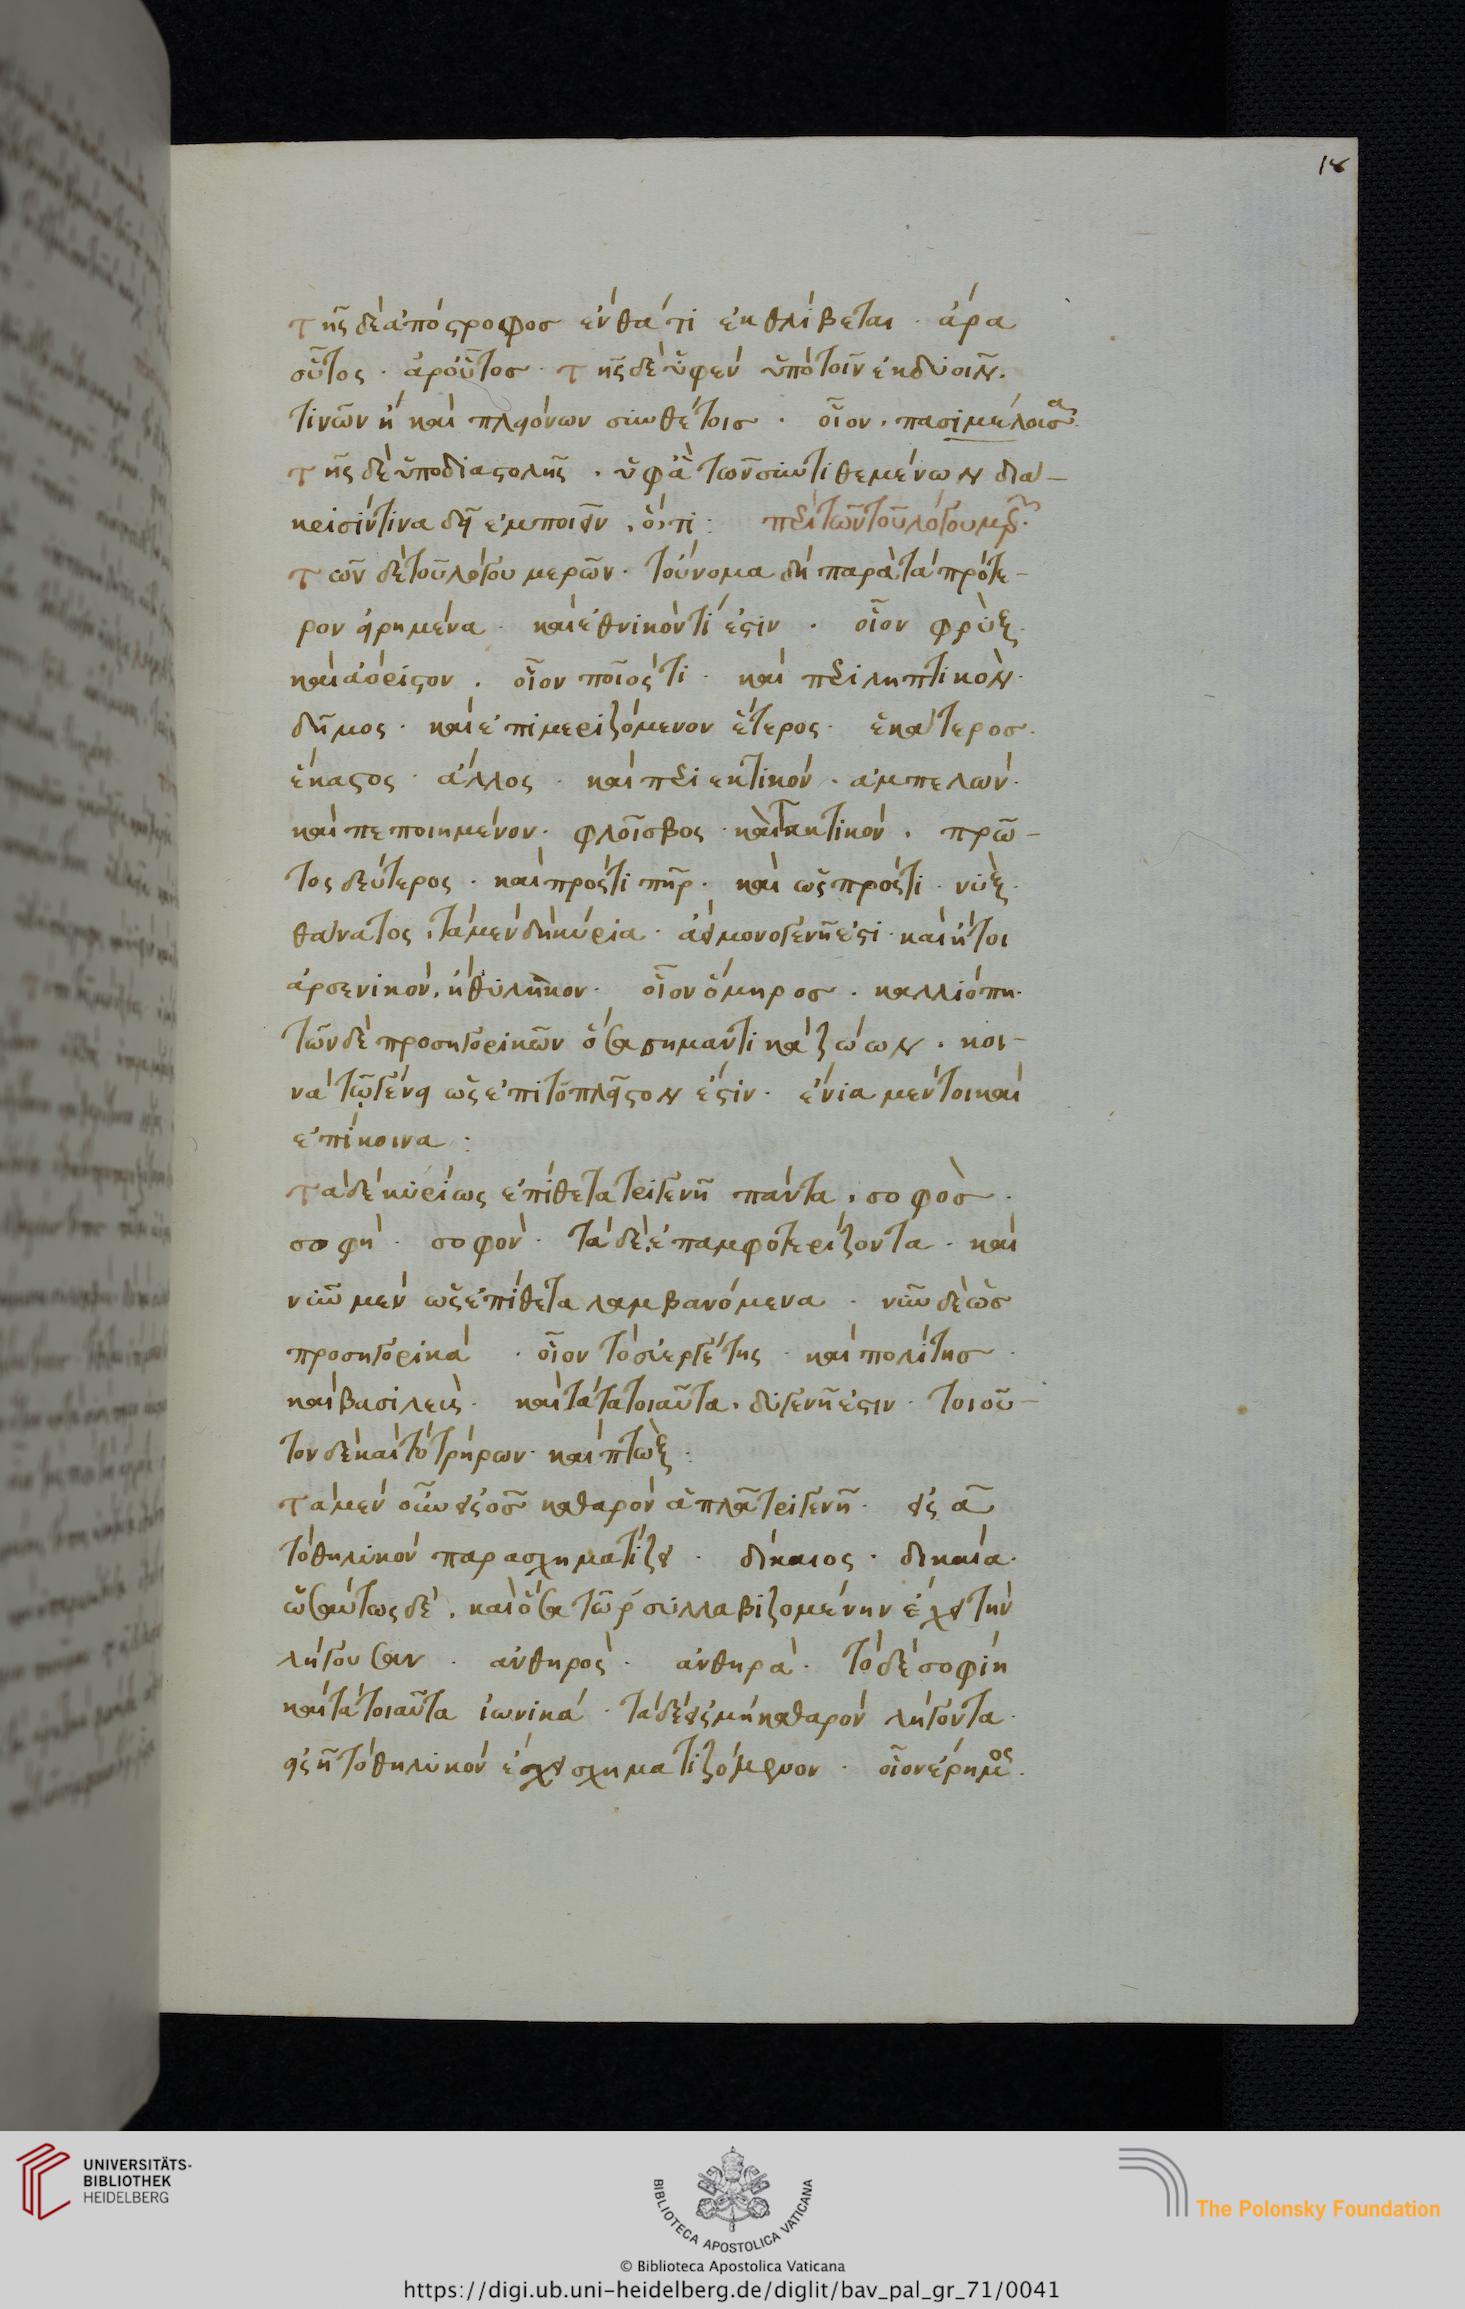 18
τῆς δὲ ἀπόστροφος ἔνθά τι ἐκθλίβεται · ἄρα
οὗτος · ἀρ' οὗτος · τῆς δὲ ὑφὲν ὑπὸ τοῖν ἐκ δυοῖν ·
τινῶν ἢ καὶ πλειόνων συνθέτοις · οἷον · πασιμέλουσα
τῆς δὲ ὑποδιαστολῆς · ὑφ' ἃ τῶν συντιθεμένων διά-
κρισίν τινα δεῖ ἐμποιεῖν · ὅ,τι : περὶ τῶν τοῦ λόγου μερῶν ·
τῶν δὲ τοῦ λόγου μερῶν · τοὔνομα δὴ παρὰ τὰ πρότε-
ρον εἰρημένα · καὶ ἐθνικόν τί ἐστιν · οἷον φρὺξ ·
καὶ ἀόριστον · οἷον ποῖός τι · καὶ περιληπτικὸν ·
δῆμος · καὶ ἐπιμεριζόμενον ἕτερος · ἑκάτερος ·
ἕκαστος · ἄλλος · καὶ περιεκτικόν · ἀμπελών ·
καὶ πεποιημένον · φλοῖσβος · καὶ τακτικόν · πρῶ-
τος δεύτερος · καὶ πρός τι πῆρ · καὶ ὡς πρός τι · νὺξ ·
θάνατος · τὰ μὲν δὴ κύρια · ἀεὶ μονογενῆ ἐστι · καὶ ἤτοι
ἀρσενικὸν, ἢ θυληκον · οἷον ὅμηρος · καλλιόπη ·
τῶν δὲ προσηγορικῶν ὅσα σημαντικὰ ζώων · κοι-
νὰ τῷ γένει ὡς ἐπιτοπλεῖστον ἐστὶν · ἔνια μέντοι καὶ
ἐπίκοινα :
τὰ δὲ κυρίως ἐπίθετα τριγενῆ πάντα · σοφὸς ·
σοφὴ · σοφὸν · τὰ δὲ ἐπαμφοτερίζοντα · καὶ
νῦν μὲν ὡς ἐπίθετα λαμβανόμενα · νῦν δὲ ὡς
προσηγορικὰ · οἷον τὸ εὐεργέτης · καὶ πολίτης ·
καὶ βασιλεὺς · καὶ τὰ τὰ τοιαῦτα · διγενῆ ἐστιν · τοιοῦ-
τον δὲ καὶ τὸ τρήρων · καὶ πτὼξ :
τὰ μὲν οὖν εἰς ος καθαρὸν ἁπλᾶ τριγενῆ · εἰς α
τὸ θηλυκὸν παρασχηματίζει · δίκαιος · δικαία ·
ὡσαύτως δὲ · καὶ ὅσα τῷ ρ συλλαβιζομένην ἔχει τὴν
λήγουσαν · ἀνθηρὸς · ἀνθηρὰ · τὸ δὲ σοφίη
καὶ τὰ τοιαῦτα ἰωνικὰ · τὰ δὲ εἰς μὴ καθαρὸν λήγοντα ·
εἰς η τὸ θηλυκὸν ἔχει σχηματιζόμενον · οἷον ἔρημος ·
UNIVERSITÄTS-
BIBLIOTHEK
HEIDELBERG
BIBLIOTECA APOSTOLICA VATICANA
The Polonsky Foundation
© Biblioteca Apostolica Vaticana
https://digi.ub.uni-heidelberg.de/diglit/bav_pal_gr_71/0041